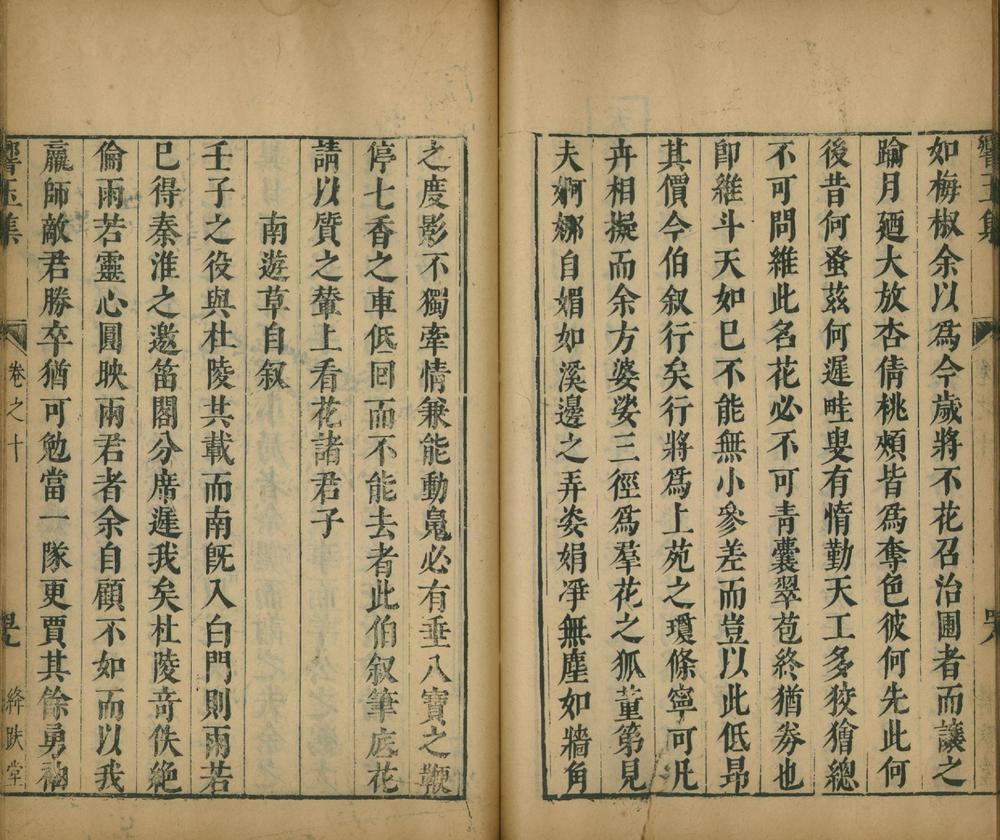 如梅椒余以爲今歲將不花召治圃者而讓之
踰月廼大放杏倩桃頰皆爲奪色彼何先此何
後昔何蚤茲何遲畦叟有惰勤天工多狡獪總
不可問維此名花必不可靑囊翠苞終猶券也
卽維斗天如巳不能無小參差而豈以此低昻
其價今伯叙行矣行將爲上苑之瓊條寧可凡
卉相擬而余方婆娑三徑爲羣花之狐董第見
夫婀娜自媚如溪邊之弄姿娟凈無塵如牆角
之度影不獨牽情兼能動鬼必有垂八寶之鞭
停七香之車低回而不能去者此伯叙筆底花
請以質之輦上看花諸君子
南遊草自叙
壬子之役與杜陵共載而南旣入白門則雨若
巳得秦淮之邀笛閣分席遲我矣杜陵竒佚絶
倫雨若靈心圓映兩君者余自顧不如而以我
羸師敵君勝卒猶可勉當一隊更賈其餘勇袖
響玉集
卷之十
絳趺堂